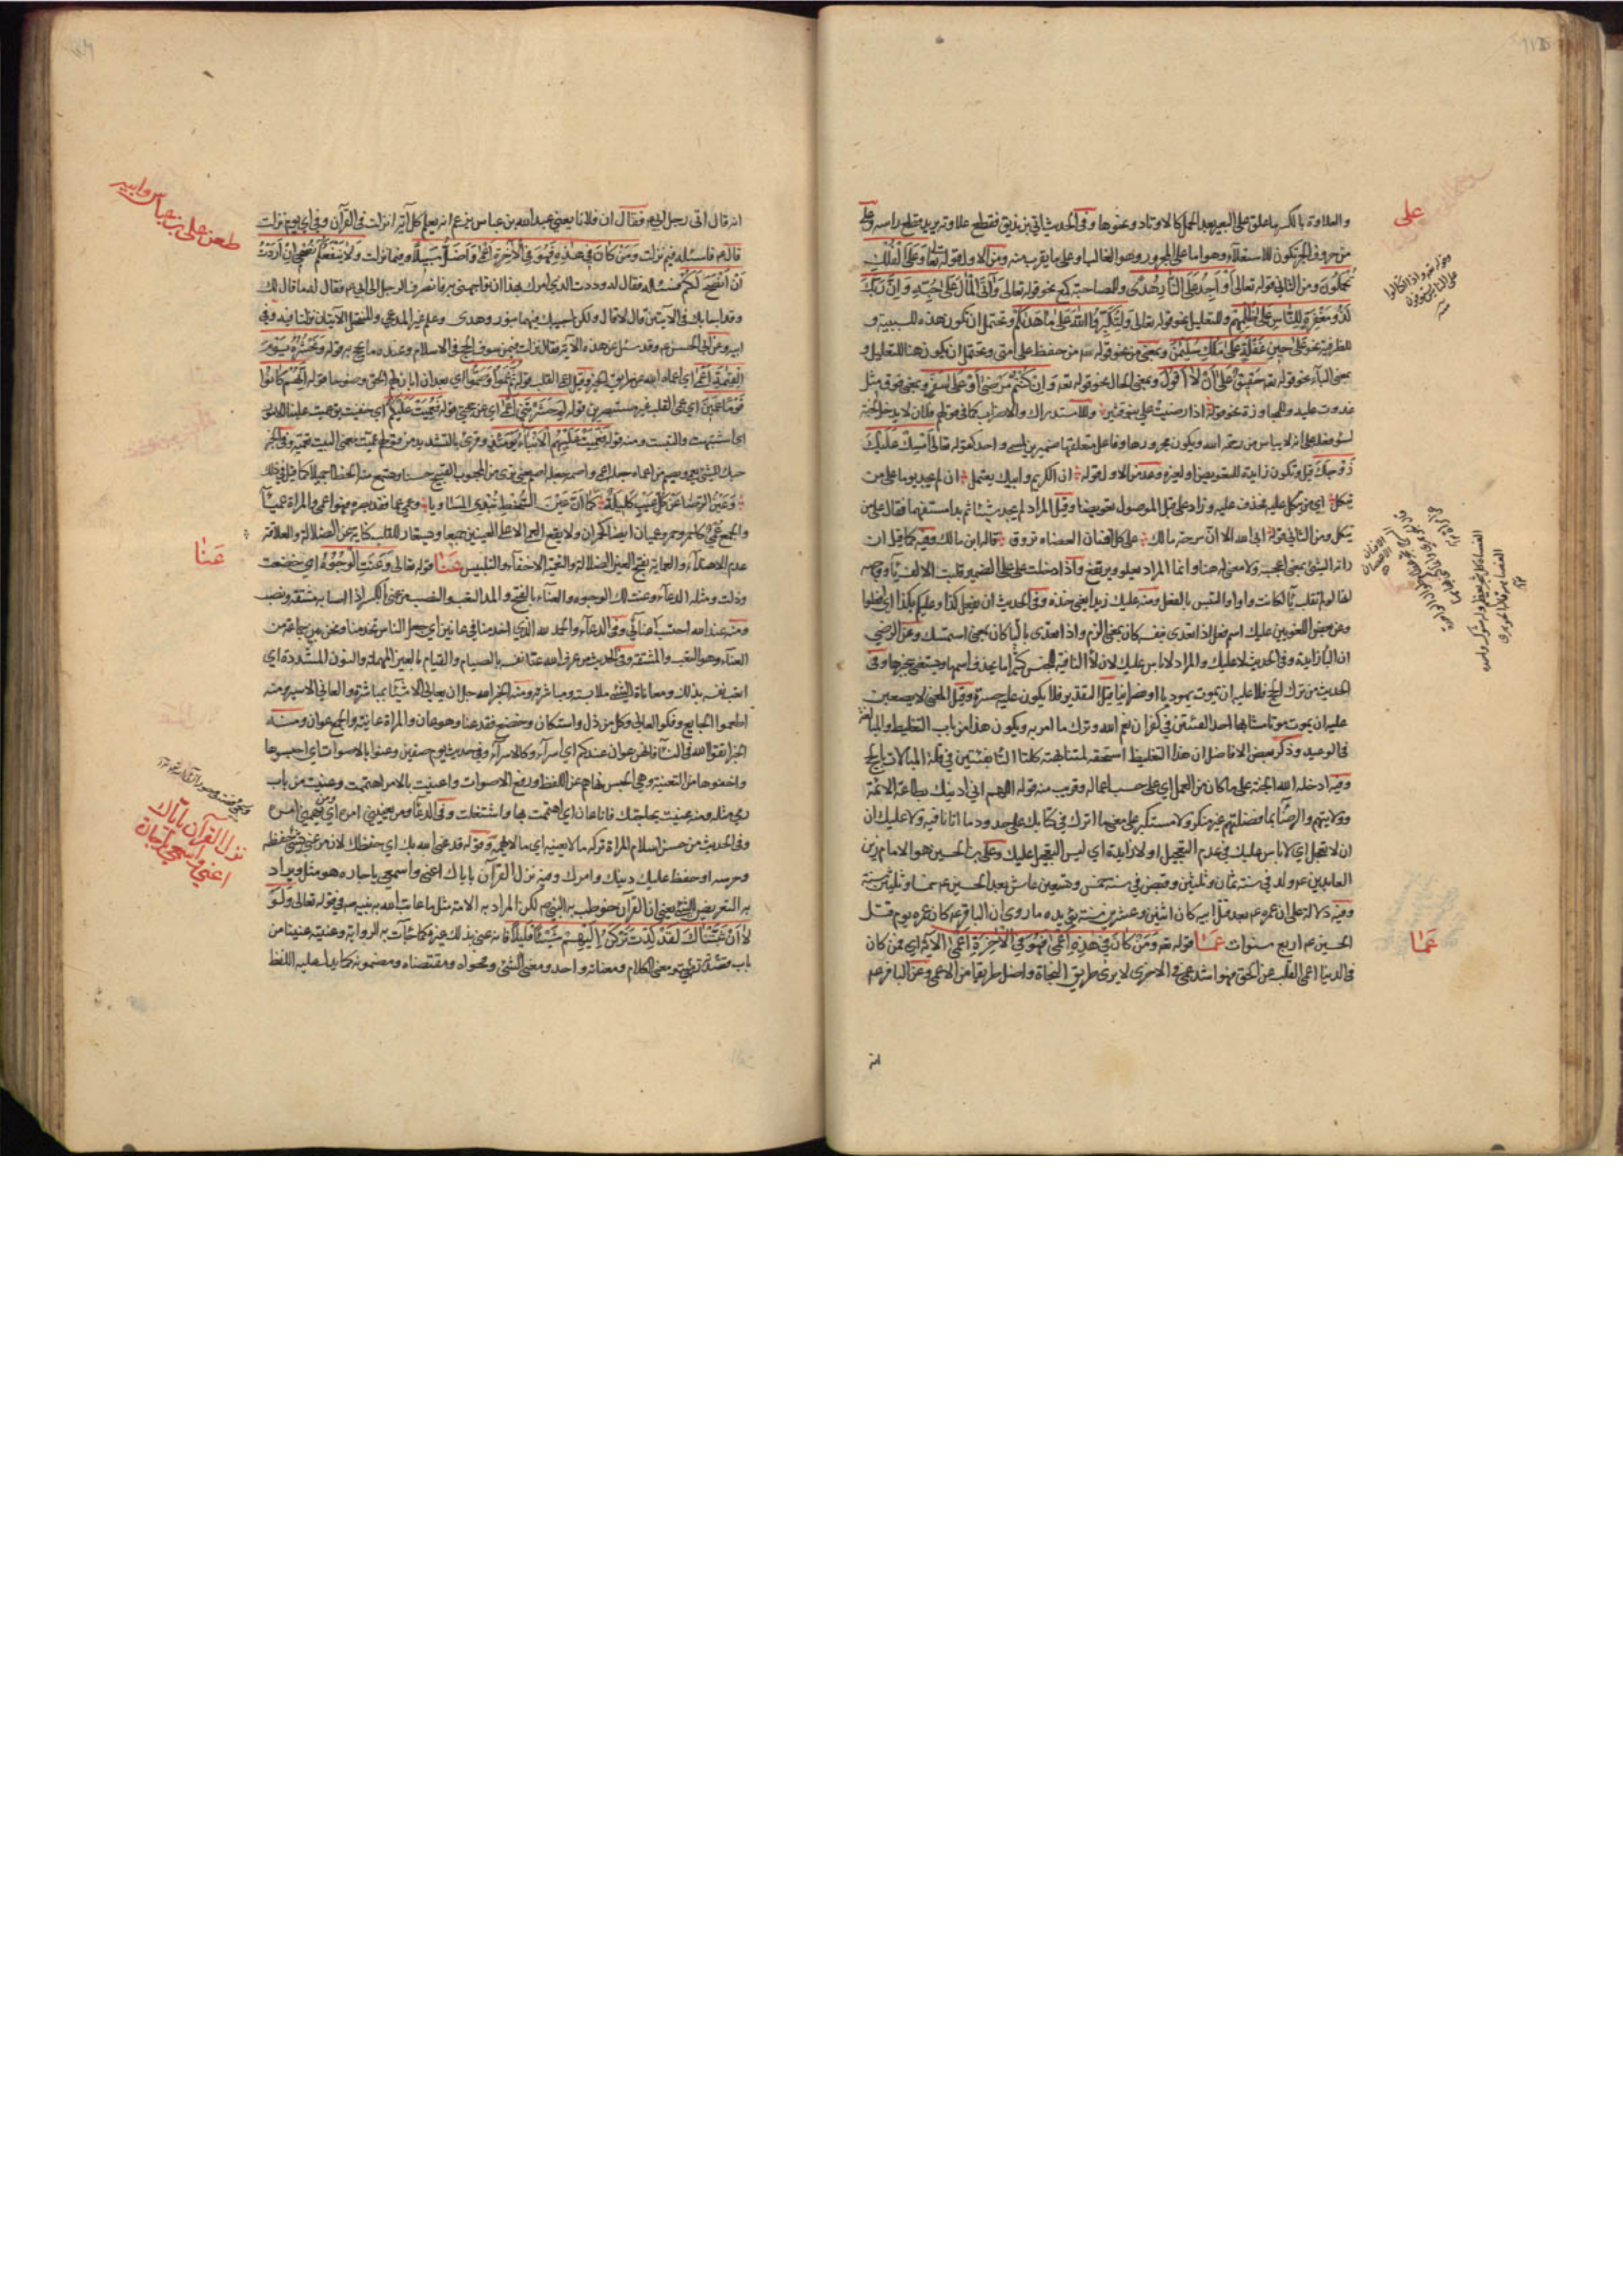 على
والعلاوة بالكسر ما علق على البعير بعد الحمل كالاوتاد ونحوها وفى الحديث اتى بزنديق فقطع علاوته يريد قطع راسه وعلى
من حروف الجر تكون للاستعلاء وهو اما على المجرور وهو الغالب او على ما يقرب منه ومن الاول قوله تعا وَعَلَى الْفُلْكِ
تُحْمَلُونَ ومن الثانى قوله تعالى أَوْ أَجِدُ عَلَى النَّارِ هُدًى وللمصاحبة كمع نحو قوله تعالى وَآتَى الْمَالَ عَلَى حُبِّهِ وَإِنَّ رَبَّكَ
لَذُو مَغْفِرَةٍ لِلنَّاسِ عَلَى ظُلْمِهِمْ وللتعليل نحو قوله تعالى وَلِتُكَبِّرُوا اللَّهَ عَلَى مَا هَدَاكُمْ وتحتمل ان تكون هذه للسببية و
للظرفية نحو عَلَى حِينِ غَفْلَةٍ عَلَى مُلْكِ سُلَيْمَنَ وبمعنى من نحو قوله من حفظ على امتى ويحتمل ان يكون هنا للتعليل و
بمعنى الباء نحو قوله تعه حَقِيقٌ عَلَى أَنْ لَا أَقُولَ وبمعنى الحال نحو قوله تعه وَإِنْ كُنْتُمْ مَرْضَى أَوْ عَلَى سَفَرٍ وبمعنى فوق مثل
غدوت عليه وللمجاوزة نحو قوله اذا رضيت على بنو قشير وللاستدراك والاضراب كما فى قولهم فلان لا يدخل الجنة
لسوء فعله على انه لا يياس من رحمة الله ويكون مجرورها وفاعل متعلقها ضميرين لمسمى واحد كقوله تعالى أَمْسِكْ عَلَيْكَ
زَوْجَكَ قيل وتكون زايدة للتعويض او لغيره وعد من الاول قوله ان الكريم وابيك يعتمل ان لم يجد يوما على من
يتكل اى من يتكل عليه فحذف عليه وزاد على قبل الموصول تعويضا وقيل المراد لم يجد شيئا ثم بدا مستفهما فقال على من
يتكل ومن الثانى قوله ابى الله الا ان سرحة مالك على كل افنان العضاه تروق قاله ابن مالك وفيه كما قيل ان
راقه الشئ بمعنى اعجبه ولا معنى له هنا وانما المراد تعلو وترتفع واذا دخلت على على الضمير قلبت الالف ياء ووجهه
وعن بعض اللغويين عليك اسم فعل اذا تعدى بنفسه كان بمعنى الزم واذا تعدى بالباء كان بمعنى استمسك وعن الرضى
ان الباء زايدة وفى الحديث لا عليك والمراد لا باس عليك لان لا النافية للجنس كثيرا ما يحذف اسمها ويستغنى بخبرها وفى
الحديث من ترك الحج فلا عليه ان يموت يهوديا او نصرانيا قيل التقدير فلا يكون عليه حسرة وقيل المعنى لا يصعبن
عليه ان يموت موتا مشابها احد الفئتين فى كفران نعم الله وترك ما امر به ويكون هذا من باب التغليظ والمبالغة
فى الوعيد وذكر بعض الافاضل ان هذا التغليظ استحقه لمشابهته كلتا الفئتين فى قلة المبالات بالحج
وفيه ادخله الله الجنة على ما كان من العمل اى على حسب اعماله وقريب منه قوله اللهم انى ادينك بطاعة الائمة
وولايتهم والرضا بما فضلتهم غير منكر ولا مستكبر على معنى ما انزلت فى كتابك على حدود ما اتانا فيه ولا عليك ان
ان لا تعجل اى لا باس عليك فى عدم التعجيل او لا زايدة اى ليس التعجيل عليك وعلى بن الحسين هو الامام زين
العابدين عم ولد فى سنة ثمان وثلثين وقبض فى سنة خمس وتسعين عاش بعد الحسين عم خمسا وثلثين سنة
وفيه دلالة على ان عمره عم بعد قتل ابيه كان اثنين وعشرين سنة يؤيده ما روى ان الباقر عم كان عمره يوم قتل
الحسين عم اربع سنوات عَمَا قوله تعه وَمَنْ كَانَ فِي هَذِهِ أَعْمَى فَهُوَ فِي الْآخِرَةِ أَعْمَى الآية اى من كان
فى الدنيا اعمى القلب عن الحق فهو اشد عمى فى الاخرى لا يرى طريق النجاة واضل طريقا من الاعمى وعن الباقر عم
عَمَا
انه
انه قال اتى رجل ابى عم فقال ان فلانا يعنى عبد الله بن عباس يزعم انه يعلم كل آية انزلت فى القرآن وفى اى يوم نزلت
قال عم فاسئله فيم نزلت وَمَنْ كَانَ فِي هَذِهِ أَعْمَى فَهُوَ فِي الْآخِرَةِ أَعْمَى وَأَضَلُّ سَبِيلًا وفيما نزلت وَلَا يَنْفَعُكُمْ نُصْحِي إِنْ أَرَدْتُ
أَنْ أَنْصَحَ لَكُمْ فساله فقال له وددت الذى امرك بهذا ان واجهنى به فانصرف الرجل الى ابى عم فقال له ما قال لك
وقد اجابك فى الآيتين قال لا قال ولكن اجيبك فيهما بنور وهدى وعلم غير المدعى والمنتحل الآيتان نزلتا فيه وفى
ابيه وعن ابى الحسن عم وقد سئل عن هذه الآية فقال نزلت فيمن سوف الحج حج الاسلام وعنده ما يحج به قوله وَنَحْشُرُهُ يَوْمَ
الْقِيَمَةِ أَعْمَى اى اعماه الله عن طريق الخير وقيل اعمى القلب قوله ثُمَّ عَمُوا وَصَمُّوا اى بعد ان ابان لهم الحق وضوحا قوله إِنَّهُمْ كَانُوا
قَوْمًا عَمِينَ اى عمى القلب غير مستبصرين قوله لِمَ حَشَرْتَنِي أَعْمَى اى عن حجتى قوله فَعُمِّيَتْ عَلَيْكُمْ اى خفيت من عميت علينا الامور
اى اشتبهت والتبست ومنه قوله فَعَمِيَتْ عَلَيْهِمُ الْأَنْبَاءُ يَوْمَئِذٍ وقرئ بالتشديد من قولهم عميت معنى البيت تعمية وفى الخبر
حبك للشئ يعمى ويصم
وَعَيْنُ الرِّضَا عَنْ كُلِّ عَيْبٍ كَلِيلَةٌ كَمَا أَنَّ عَيْنَ السُّخْطِ تُبْدِى المساويا وعمى عما فقد بصره فهو اعمى والمراة عمياء
والجمع عُمْىٌ كاحمر وحمر وعميان ايضا كحمران ولا يقع العمى الا على العينين جميعا ويستعار للقلب كناية عن الضلالة والعلاقة
عدم الاهتداء والعماية بفتح العين الضلالة والتعمية الاخفاء والتلبيس عَنَا قوله تعالى وَعَنَتِ الْوُجُوهُ اى خضعت
وذلت ومثله الدعاء وعنت لك الوجوه والعناء بالفتح والمد التعب والنصب من عنى بالكسر اذا اصابه مشقة ونصب
ومنه عند الله احتسب عنائى وفى الدعاء والحمد لله الذى
العناء وهو التعب والمشقة وفى الحديث من عرف الله عنا نفسه بالصيام والقيام بالعين المهملة والنون المشددة اى
اتعب نفسه بذلك ومعاناة الشئ ملابسته ومباشرته ومنه الخبر الله جل ان يعانى الاشياء بمباشرة والعانى الاسير ومنه
اطعموا الجايع وفكوا العانى وكل من ذل واستكان وخضع فقد عنا وهو عان والمراة عانية والجمع عوان ومنه
الخبر اتقوا الله فى النساء فانهن عوان عندكم اى اسراء وكالاسراء وفى حديث يوم صفين وعنوا بالاصوات اى احبسوها
واخفوها من التعنية وهى الحبس نهاهم عن اللغط ورفع الاصوات واعتنيت بالامر اهتممت وعنيت من باب
رمى مثله ومنه عنيت بحاجتك فانا عان اى اهتممت بها واشتغلت وفى الدعاء ومن يعنينى امره اى ومن يهمنى امره
وفى الحديث من حسن اسلام المرأة تركه ما لا يعنيه اى ما لا يهمه وقوله قد عنى الله بك اى حفظك لان من عنى بشئ حفظه
وحرسه او حفظ عليك دينك وامرك وفيه نزل القرآن باياك اعنى واسمعى يا جاره هو مثل ويراد
به التعريض للشئ يعنى ان القرآن خوطب به النبى ص لكن المراد به الامة مثل ما عاتب الله به نبيه ص فى قوله تعالى وَلَوْ
لَا أَنْ ثَبَّتْنَاكَ لَقَدْ كِدْتَ تَرْكَنُ إِلَيْهِمْ شَيْئًا قَلِيلًا فانه عنى بذلك غيره كما جاءت به الرواية وعنيته عنيا من
باب رمى قصدته ومعنى الكلام ومعناته واحد ومعنى الشئ وفحواه ومقتضاه ومضمونه كما يدل عليه اللفظ
طعن على ابن عباس وابيه
عَنَا
نزل القرآن باياك
اعنى واسمعى يا جارة